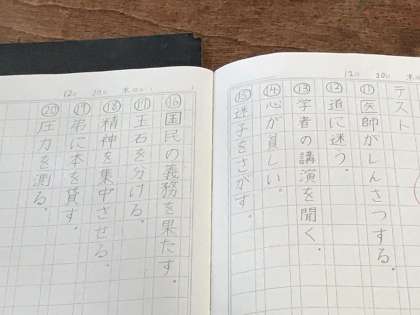 12月 20日 木曜日
テスト
⑪医師がしんさつする。
⑫道に迷う。
⑬学者の講演を聞く。
⑭心が貧しい。
⑮迷子をさがす。
12月 20日 木曜日
⑯国民の義務を果たす。
⑰玉石を分ける。
⑱精神を集中させる。
⑲弟に本を貸す。
⑳圧力を測る。